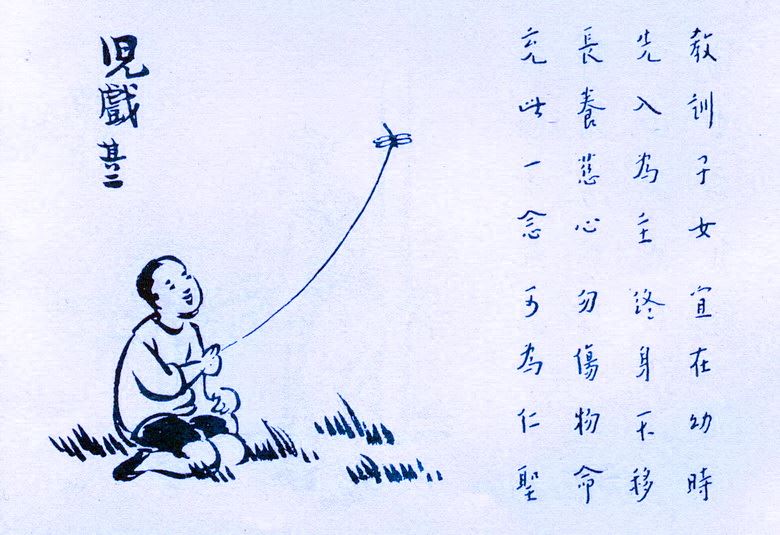 教訓子女宜在幼時
先入為主終身不移
長養慈心勿傷物命
充此一念可為仁聖
兒戲
其二